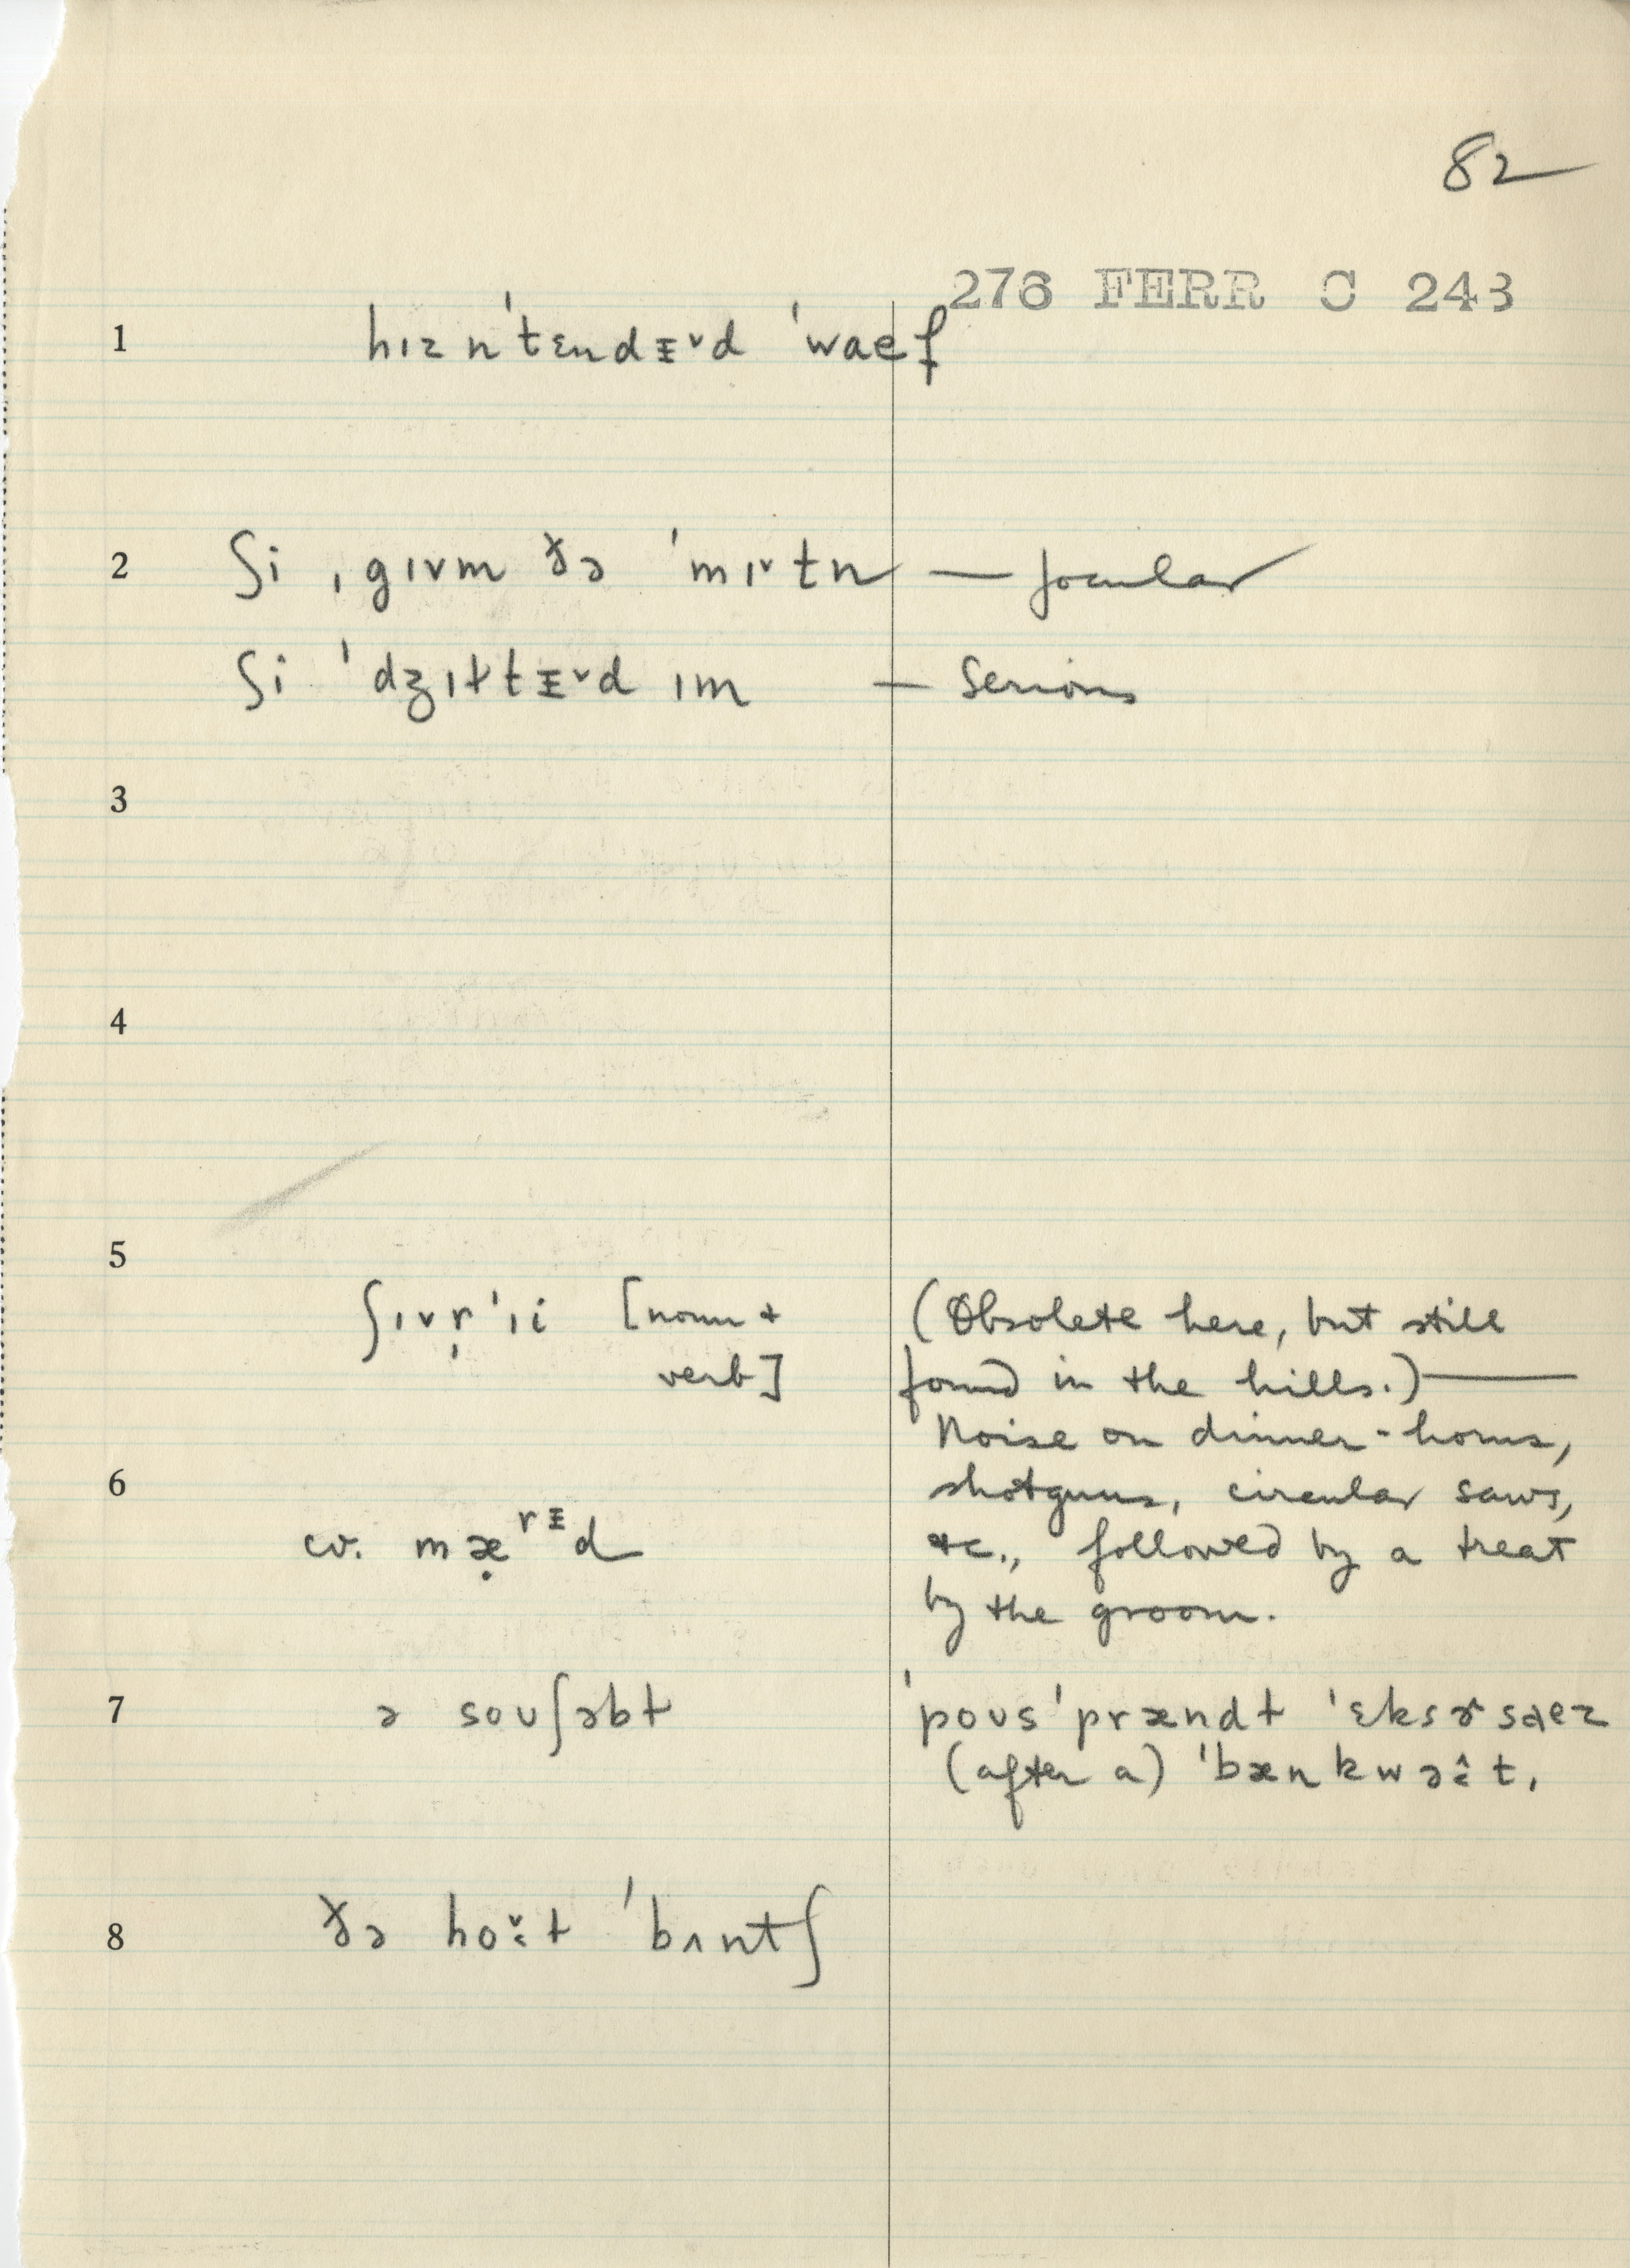 82
276 FERR C 243
1 hɪz n'tɛndᵻ˅d 'waef
2 ʃi ˌgɪvm ðə 'mɪ˅tn — jocular
ʃi 'dʒɪɫtᵻ˅d ɪm — serious
3
4
5
ʃɪvṛ'ɪi [noun + (Obsolete here, but still
verb] found in the hills.)—
Noise on dinner-horns,
6 shotguns, circular saws,
cv. mæ̣ʳᵻd etc., followed by a treat
by the groom.
7 ə soʊʃəbɫ 'poʊs'prændɫ 'ɛksɚsaez
(after a) 'bænkwəɛ̂t.
8 ðə hoɛ̌ɫ 'bʌntʃ